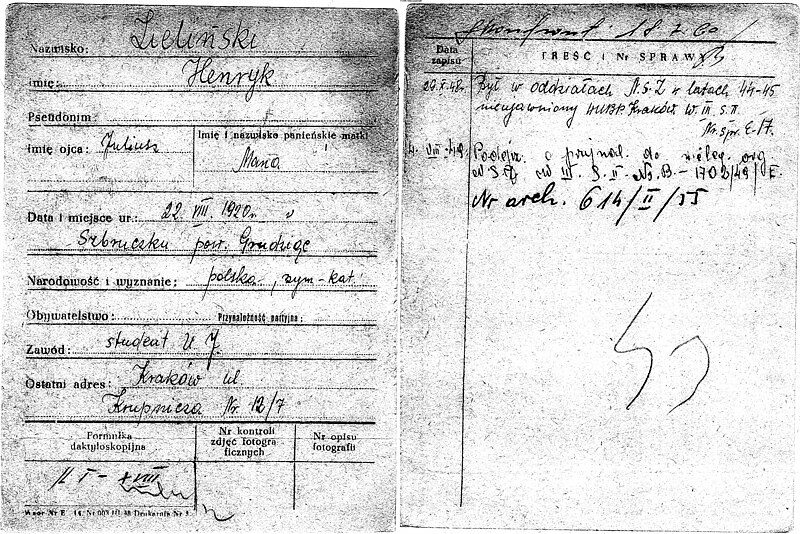 Nazwisko: Zieliński
Imię: Henryk
Pseudonim:
Imię ojca: Juliusz
Imię i nazwisko panieńskie matki
Maria
Data i miejsce ur.: 22. VIII. 1920r.
pow. Grudziądz
Narodowość i wyznanie: polska, rzym-kat.
Obywatelstwo: Przynależność partyjna:
Zawód: student U. J.
Ostatni adres: Kraków ul
Krupnicza Nr. 12/7
Formułka daktyloskopijna
Nr kontroli zdjęć fotograficznych
Nr opisu fotografii
II I – XVIII
Wzór Nr E
18 I 60
Data zapisu
TREŚĆ i Nr SPRAWY
Był w oddziałach N.S.Z w latach 44-45
nieujawniony WUBP. Kraków W. III. S. II.
Nr. spr. E-17.
VIII 49. Podejrz. o przynal. do nieleg. org.
III. S. II. – 1702/49/E.
Nr arch. 614/II/55